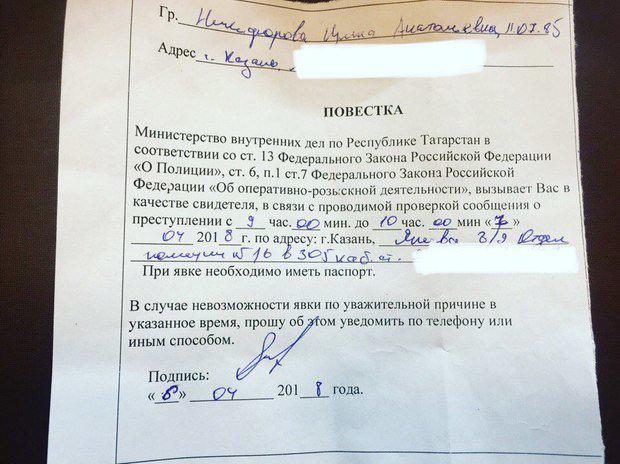 Гр. Никифорова Ирина Анатольевна, 11.07.85
Адрес г. Казань,
ПОВЕСТКА
Министерство внутренних дел по Республике Татарстан в
соответствии со ст. 13 Федерального Закона Российской Федерации
«О Полиции», ст. 6, п.1 ст.7 Федерального Закона Российской
Федерации «Об оперативно-розыскной деятельности», вызывает Вас в
качестве свидетеля, в связи с проводимой проверкой сообщения о
преступлении с 9 час. 00 мин. до 10 час. 00 мин «7»
04 2018 г. по адресу: г.Казань, 3/9 Отдел
полиции №16 в 305 каб. ст.
При явке необходимо иметь паспорт.
В случае невозможности явки по уважительной причине в
указанное время, прошу об этом уведомить по телефону или
иным способом.
Подпись:
«6» 04 2018 года.